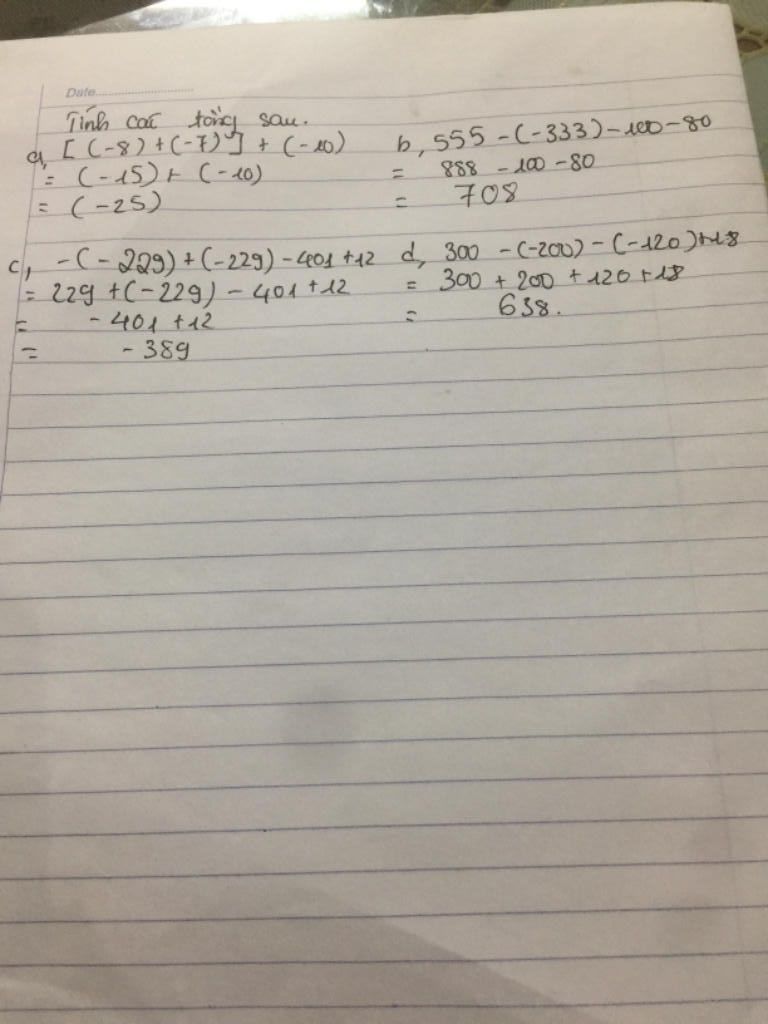 Date
Tính các tổng sau.
a, [(-8)+(-7)]+(-10)
= (-15)+(-10)
= (-25)
b, 555-(-333)-100-80
= 888-100-80
= 708
c, -(-229)+(-229)-401+12
= 229+(-229)-401+12
= -401+12
= -389
d, 300-(-200)-(-120)+18
= 300+200+120+18
= 638.